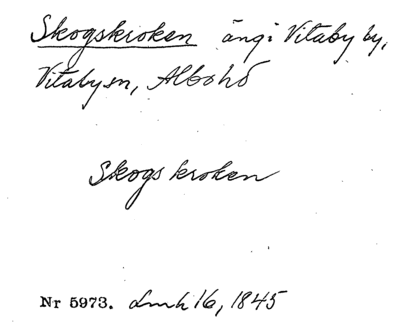 Skogskroken äng i Vitaby by,
Vitaby sn, Albo hd
Skogskroken
Nr 5973. Lmh 16, 1845